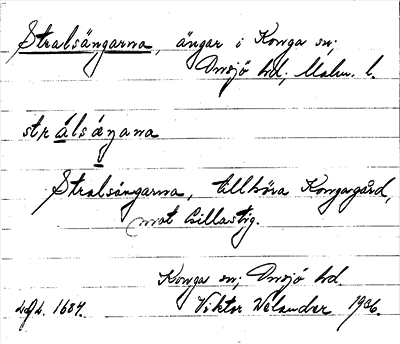 Stralsängarna, ängar i Konga sn,
Onsjö hd, Malm. l.
strálsæŋana
Stralsängarna, tillhöra Kongagård,
mot Cillastig.
Konga sn, Onsjö hd.
1684. Viktor Welander 1936.